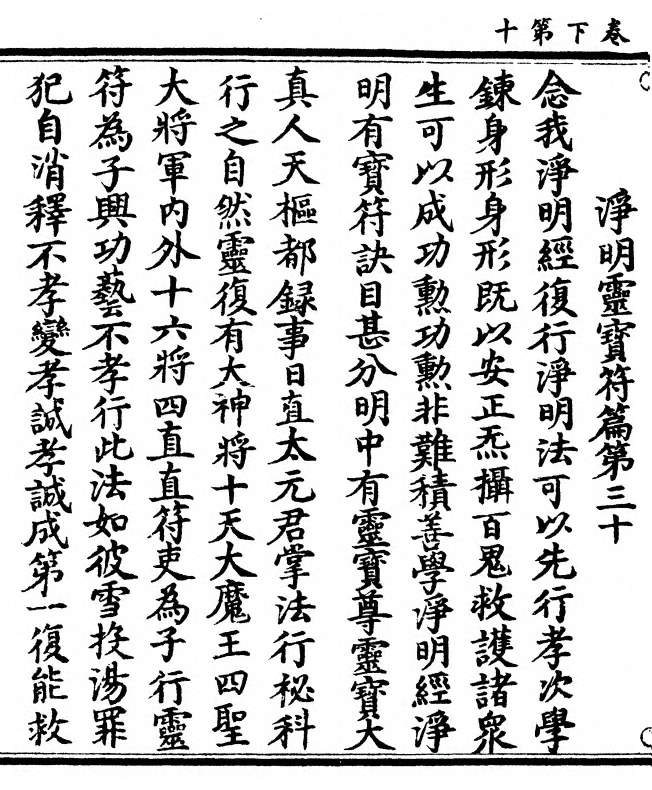 卷下第十
淨明靈寶符篇第三十
念我淨明經復行淨明法可以先行孝次學
鍊身形身形既以安正炁攝百鬼救護諸眾
生可以成功勲功勲非難積善學淨明經淨
明有寶符訣目甚分明中有靈寶尊靈寶大
真人天樞都録事日直太元君掌法行秘科
行之自然靈復有大神將十天大魔王四聖
大將軍内外十六將四直直符吏為子行靈
符為子興功藝不孝行此法如彼雪投湯罪
犯自消釋不孝變孝誠孝誠成第一復能救